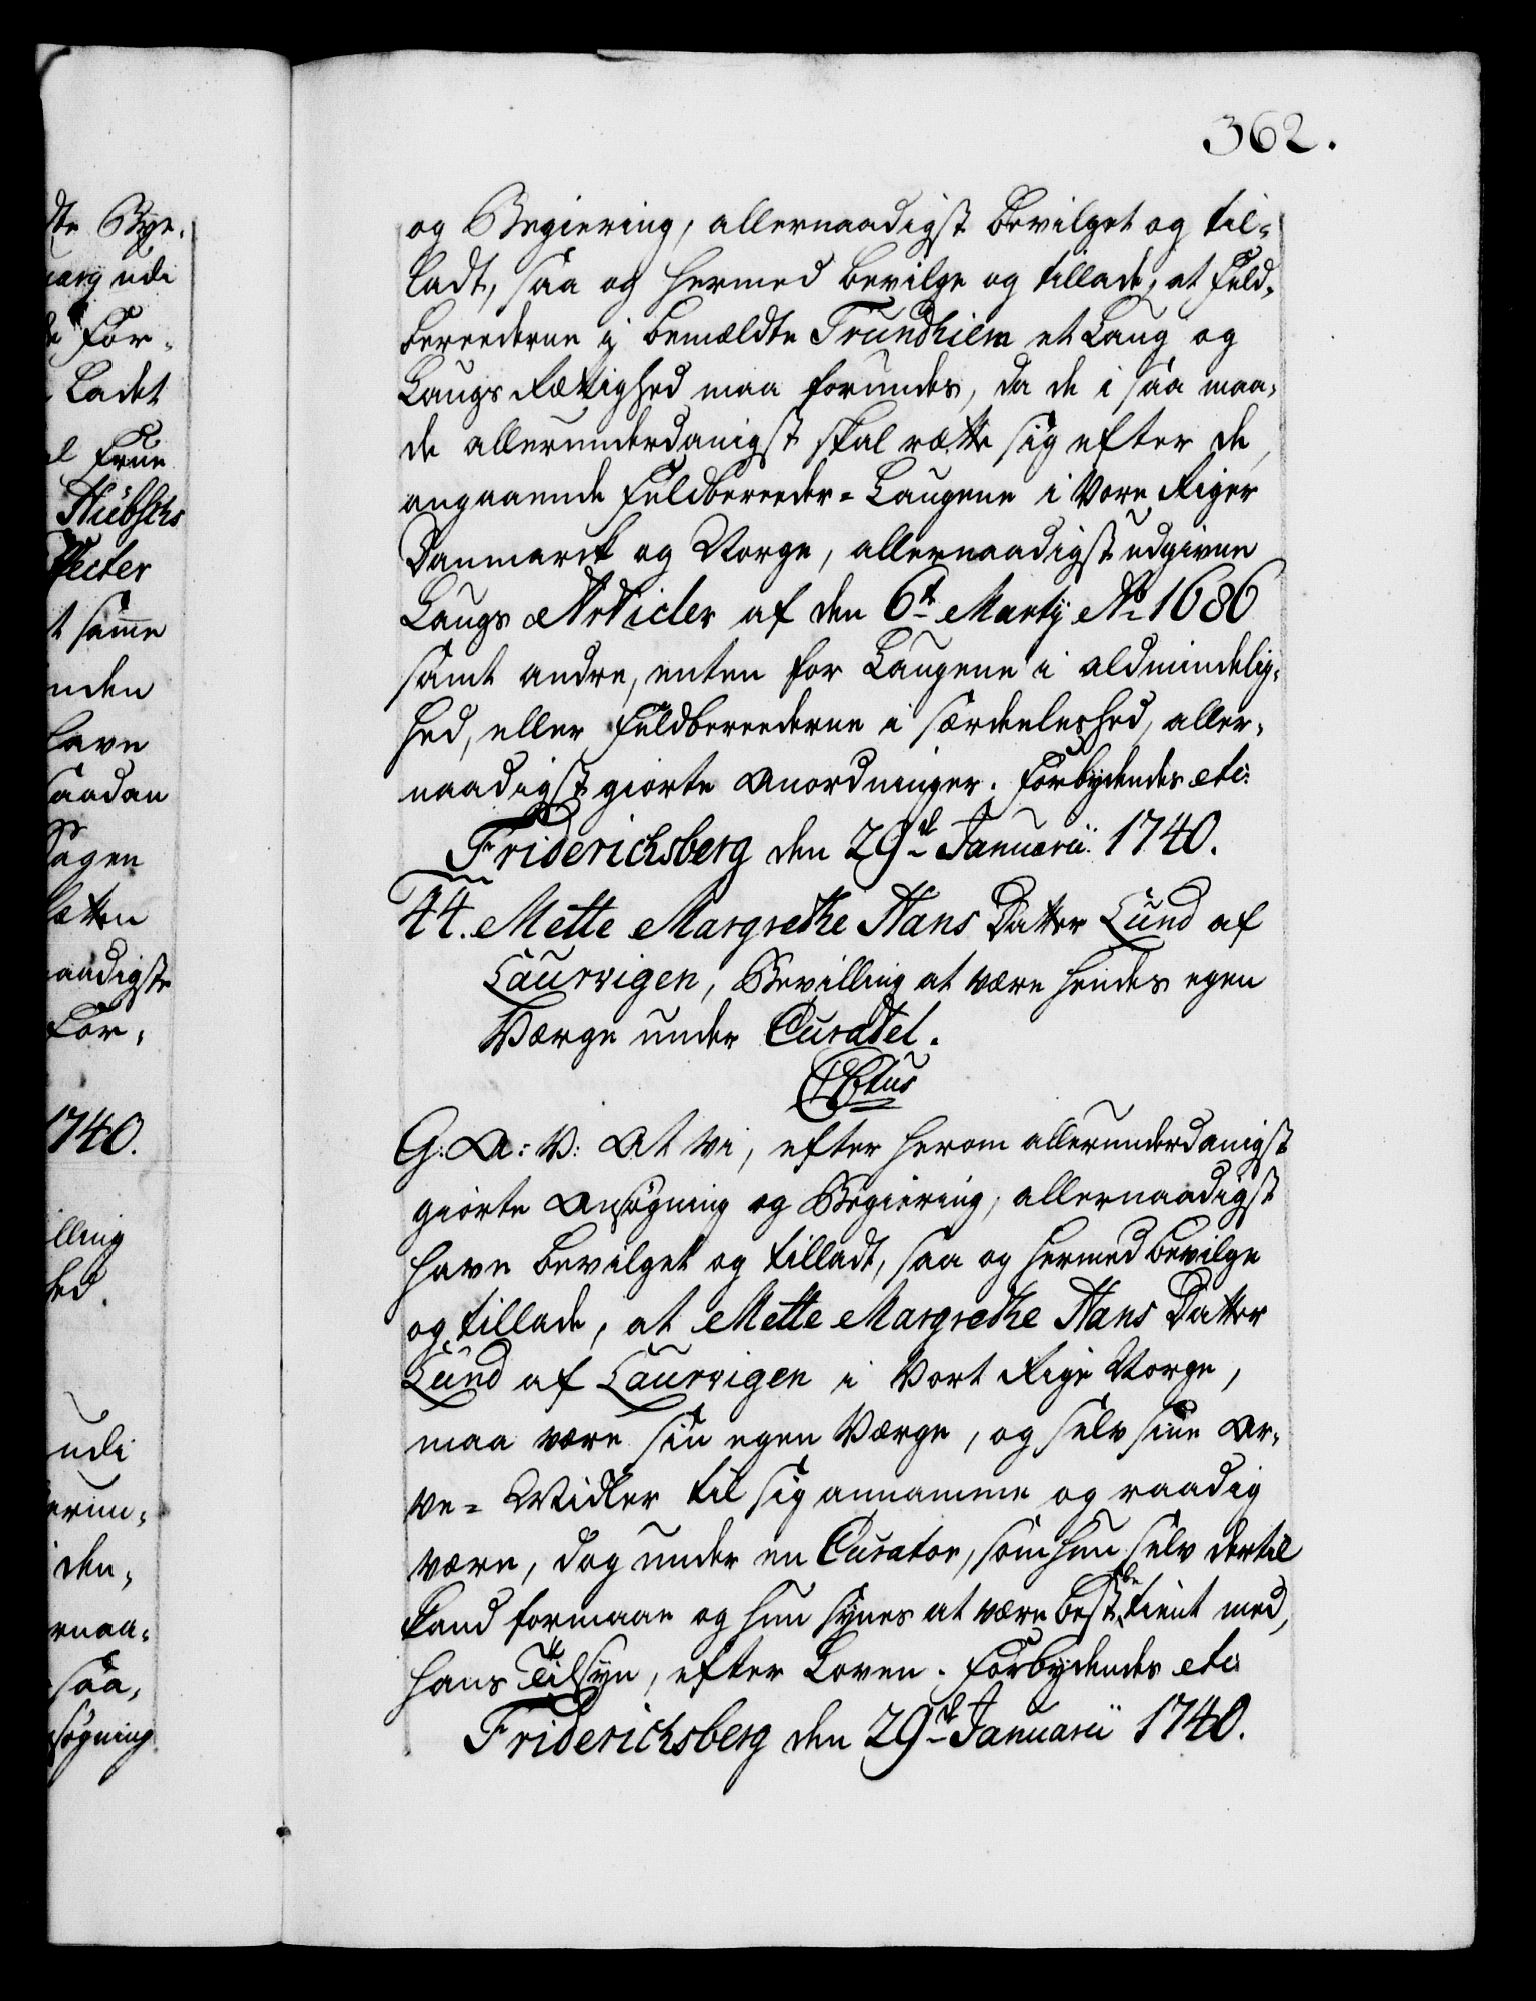 362.
og Begiering, allernaadigst bevilget og til-
ladt, saa og hermed bevilge og tillade, at Feld-
bereederne i bemældte Trundhiem et Laug og
Laugs Rettighed maa forundes, da de i saa maa-
de allerunderdanigst skal rætte sig efter de,
angaaende Feldbereeder-Laugene i Vore Riger
Danmarck og Norge, allernaadigst udgivne
Laugs Articler af den 6te Martij Ao 1686
samt andre, enten for Laugene i almindelig-
hed, eller Feldbereederne i særdeeleshed, aller-
naadigst giorte Anordninger. Forbydendes etc:
Friderichsberg den 29de Januarii 1740.
44. Mette Margrethe Hans Datter Lund af
Laurvigen, Bevilling at være hendes egen
Værge under Curatel.
G: A: V: At Vi, efter herom allerunderdanigst
giorte Ansøgning og Begiering, allernaadigst
have bevilget og tilladt, saa og hermed bevilge
og tillade, at Mette Margrethe Hans Datter
Lund af Laurvigen i Vort Rige Norge,
maa være sin egen Værge, og selv sine Ar-
ve-Midler til sig annamme og raadig
være, dog under en Curator, som hun selv dertil
kand formaae og hun synes at være best betient med,
hans Tilsyn, efter Loven. Forbydendes etc:
Friderichsberg den 29de Januarii 1740.